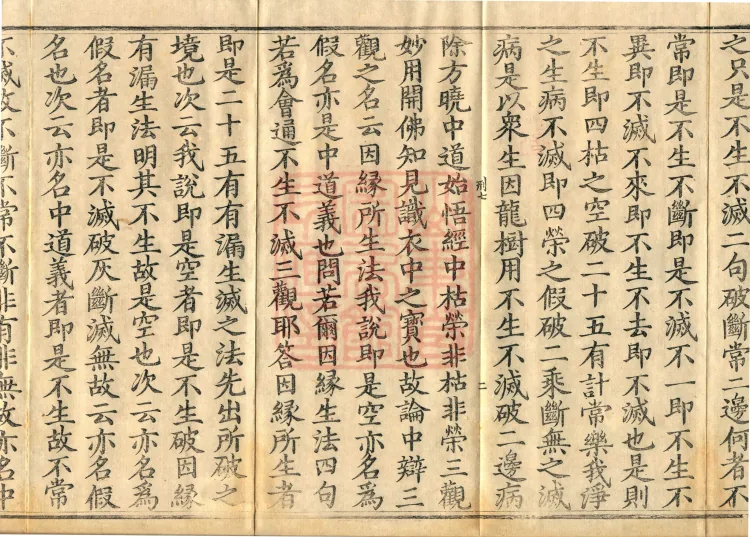 之只是不生不滅二句破斷常二邊何者不
常即是不生不斷即是不滅不一即不生不
異即不滅不來即不生不去即不滅也是則
不生即四枯之空破二十五有計常樂我淨
之生病不滅即四榮之假破二乘斷無之滅
病是以衆生因龍樹用不生不滅破二邊病
刑七
二
除方曉中道始悟經中枯榮非枯非榮三觀
妙用開佛知見識衣中之寶也故論中辯三
觀之名云因緣所生法我說即是空亦名為
假名亦是中道義也問若爾因緣生法四句
若爲會通不生不滅三觀耶答因緣所生者
即是二十五有有漏生滅之法先出所破之
境也次云我說即是空者即是不生破因緣
有漏生法明其不生故是空也次云亦名爲
假名者即是不滅破灰斷滅無故云亦名假
名也次云亦名中道義者即是不生故不常
不滅故不斷不常不斷非有非無故亦名中